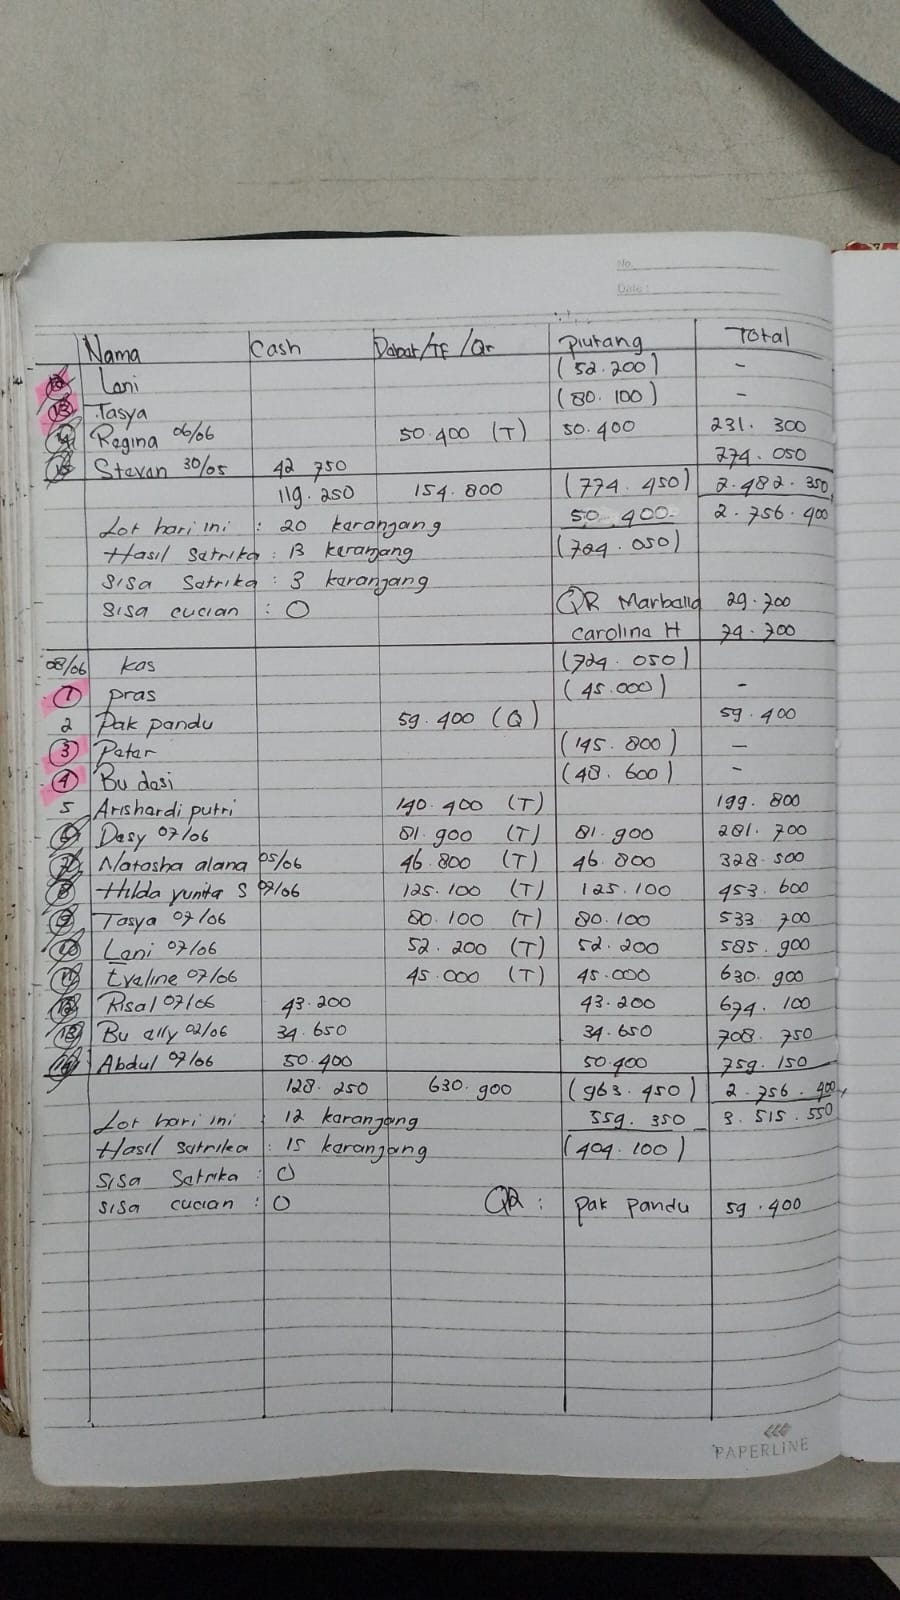 No.
Date :
Nama Cash Dabat/TF/Qr piutang Total
12 Lani (52.200) -
13 Tasya (80.100) -
14 Regina 06/06 50.400 (T) 50.400 231.300
15 Stevan 30/05 42 750 274.050
119.250 154.800 (774.450) 2.482.350
Lot hari ini : 20 karangang 50.400 2.756.400
Hasil satrika : 13 karanjang (724.050)
sisa satrika : 3 karangjang
sisa cucian : 0 QR Marballa 29.700
carolina H 74.700
08/06 kas (724.050)
1 pras (45.000) -
2 Pak pandu 59.400 (Q) 59.400
3 Petar (145.800) -
4 Bu dasi (48.600) -
5 Arishardi putri 140.400 (T) 199.800
6 Desy 07/06 81.900 (T) 81.900 281.700
7 Natasha alana 05/06 46.800 (T) 46.800 328.500
8 Hilda yunita S 07/06 125.100 (T) 125.100 453.600
9 Tasya 07/06 80.100 (T) 80.100 533 700
10 Lani 07/06 52.200 (T) 52.200 585.900
11 Evaline 07/06 45.000 (T) 45.000 630.900
12 Risal 07/06 43.200 43.200 674.100
13 Bu ally 02/06 34.650 34.650 708.750
14 Abdul 07/06 50.400 50.400 759.150
128.250 630.900 (963.450) 2.756.400
Lot hari ini : 12 karangjang 559.350 3.515.550
Hasil satrika : 15 karangjang (404.100)
sisa Satrika : 0
sisa cucian : 0 QR : pak pandu 59.400
PAPERLINE